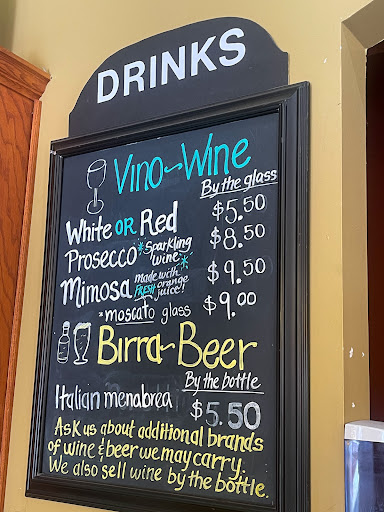 DRINKS
Vino~Wine
By the glass
White OR Red $5.50
Prosecco *Sparkling wine* $8.50
Mimosa made with FRESH orange juice! $9.50
*moscato glass $9.00
Birra~Beer
By the bottle
Italian menabrea $5.50
Ask us about additional brands
of wine & beer we may carry.
We also sell wine by the bottle.